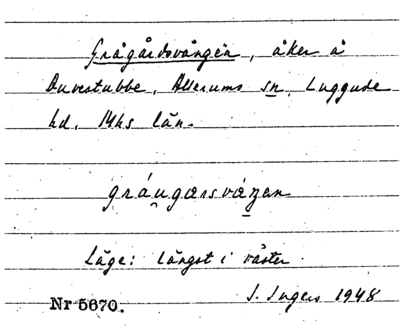 Grågårdsvången, åker å
Duvestubbe, Allerums sn, Luggude
hd, Mhs län.
gráu̯garsvàŋen
Läge: längst i väster
I. Ingers 1948
Nr 5670.